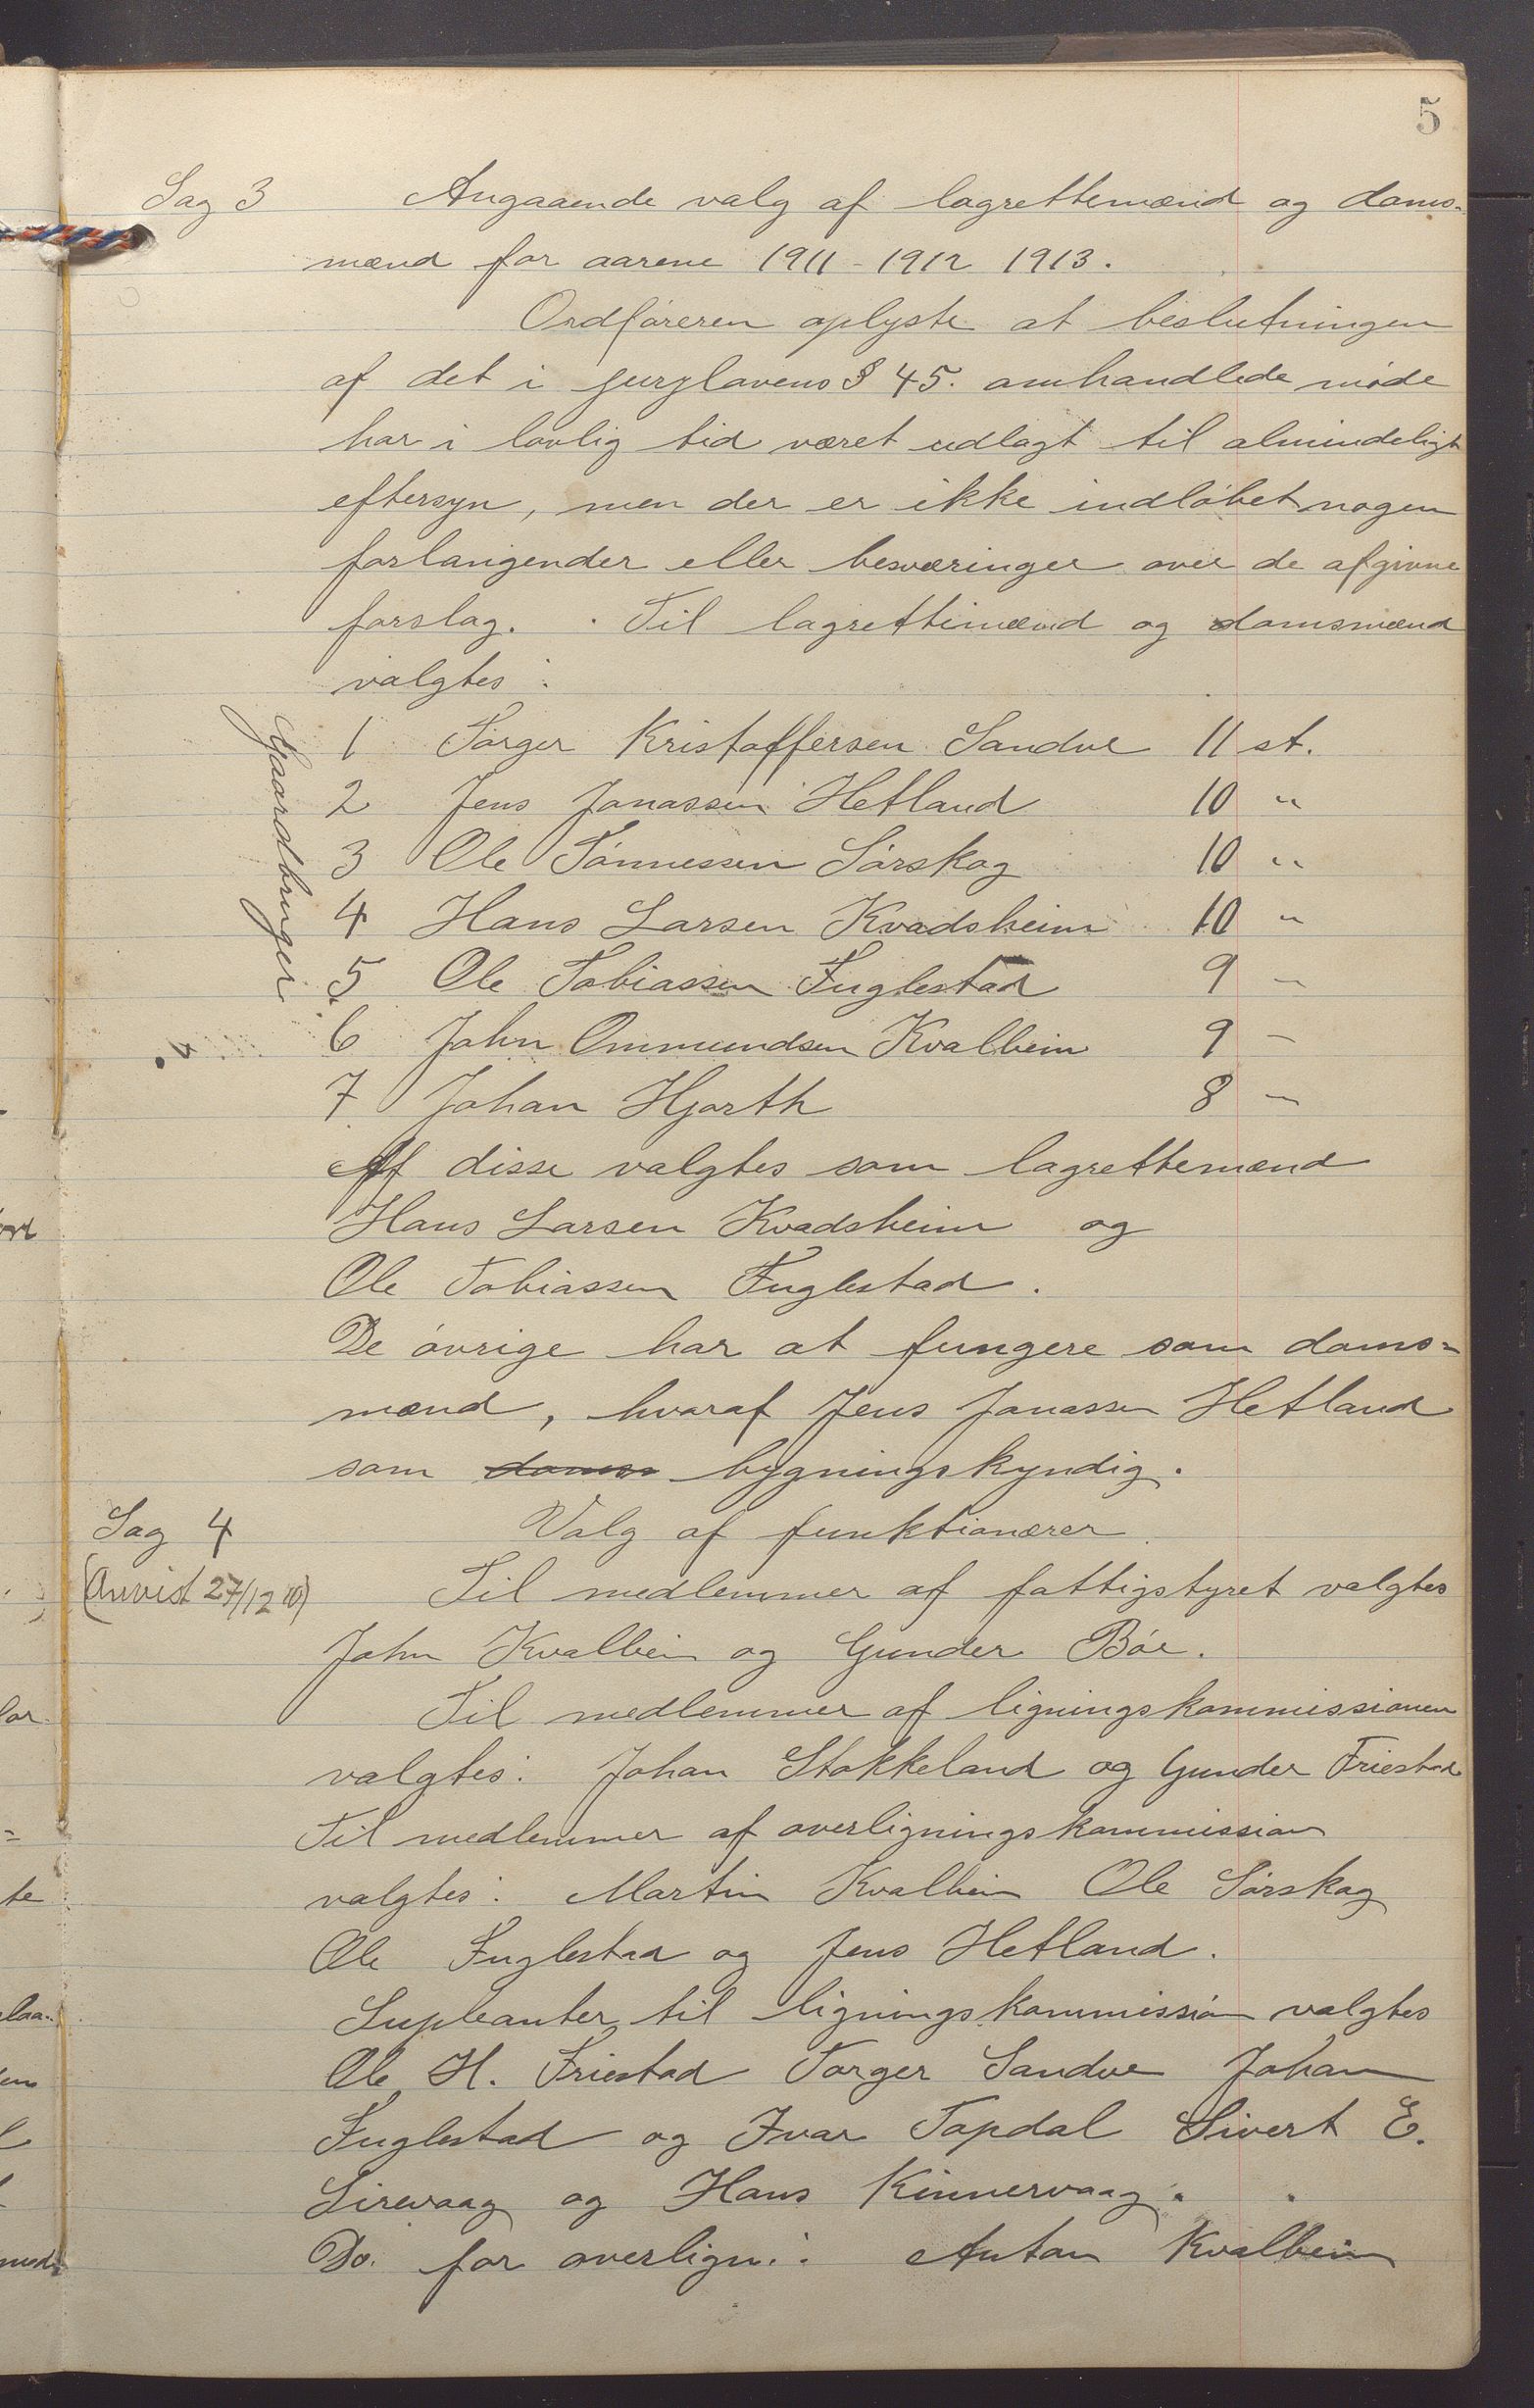 5
Sag 3 Angaaende valg af lagrettemænd og doms-
mænd for aarene 1911 - 1912 1913.
Ordføreren oplyste at beslutningen
af det i jurylovens § 45. omhandlede møde
har i lovlig tid været udlagt til almindeligt
eftersyn, men der er ikke indløbet nogen
forlangender eller besværinger over de afgivne
forslag. Til lagrettemænd og domsmænd
valgtes:
Gaardbruger
1 Torger Kristoffersen Sandve 11 st.
2 Jens Jonassen Hetland 10 "
3 Ole Tønnessen Sørskog 10 "
4 Hans Larsen Kvadsheim 10 "
5 Ole Tobiassen Fuglestad 9 -
6 John Ommundsen Kvalbein 9 -
7 Johan Hjorth 8 -
Af disse valgtes som lagrettemænd
Hans Larsen Kvadsheim og
Ole Tobiassen Fuglestad.
De øvrige har at fungere som doms=
mænd, hvoraf Jens Jonassen Hetland
som bygningskyndig.
Sag 4 Valg af funktionærer
(Anvist 27/12 10) Til medlemmer af fattigstyret valgtes
John Kvalbein og Gunder Bøe.
Til medlemmer af ligningskommissionen
valgtes: Johan Stokkeland og Gunder Friestad
Til medlemmer af overligningskommission
valgtes: Martin Kvalbein Ole Sørskog
Ole Fuglestad og Jens Hetland.
Supleanter til ligningskommission valgtes
Ole H. Friestad Torger Sandve Johan
Fuglestad og Ivar Topdal Sivert E.
Sirevaag og Hans Kinnervaag.
Do. for overlign.: Anton Kvalbein